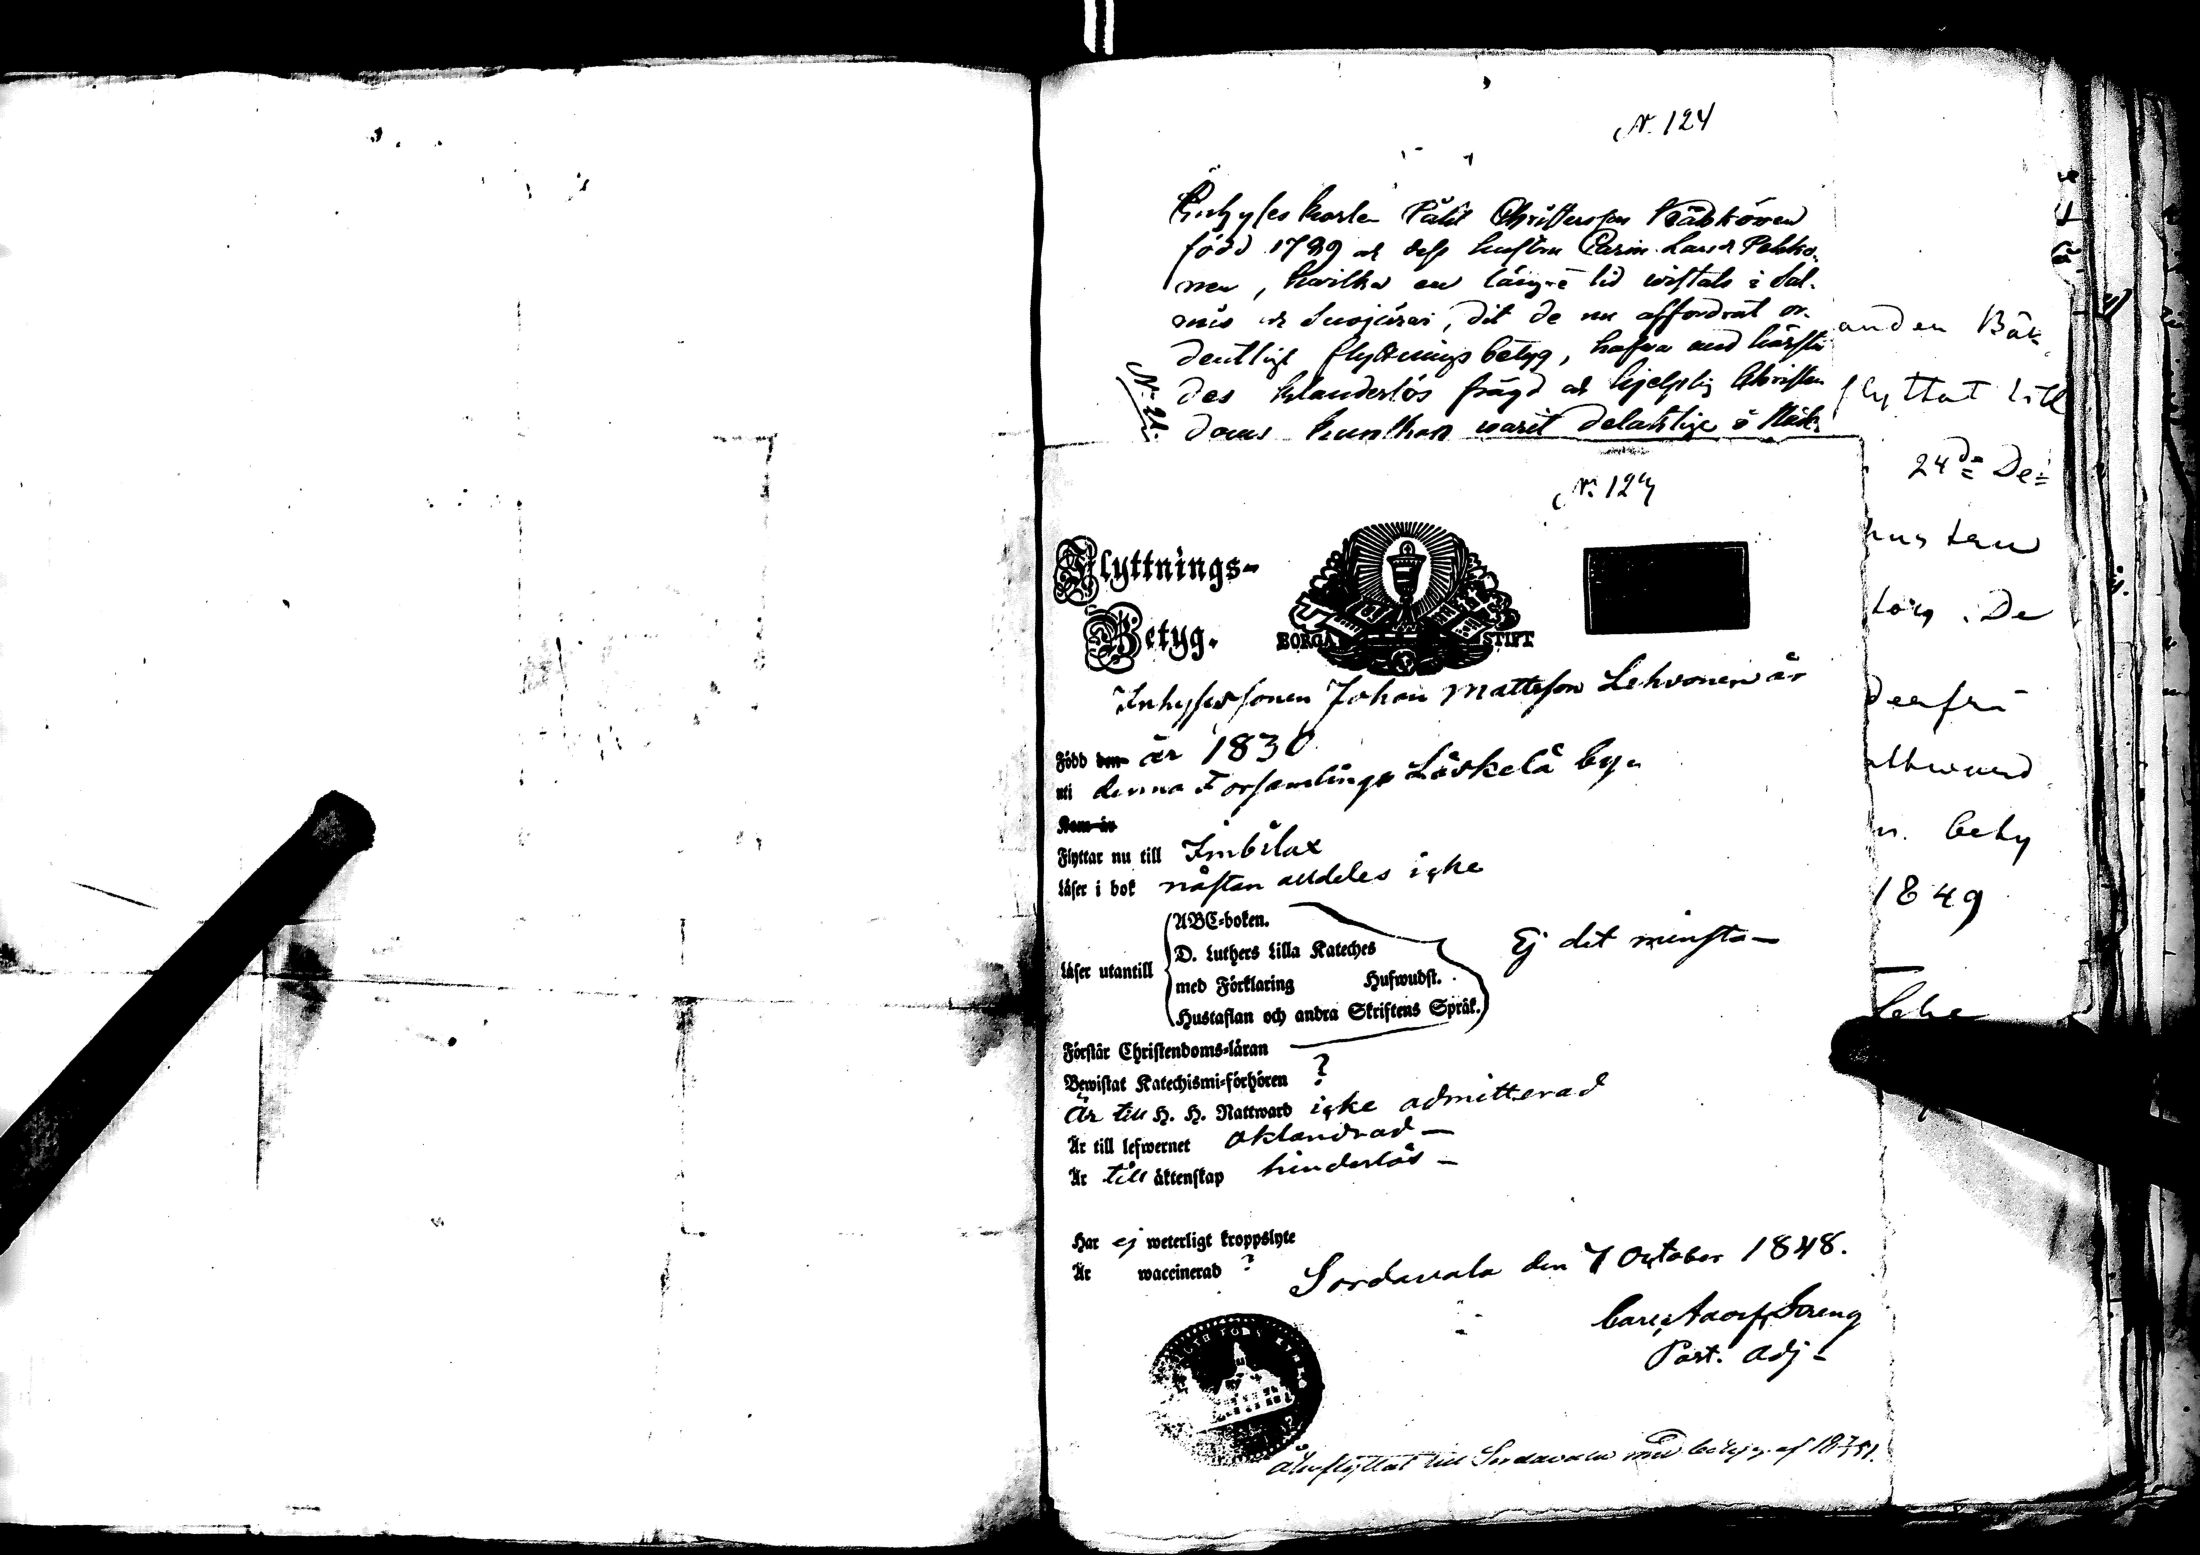 N. 124
Inhyses karlen Påhl Christersson Räkkönen
född 1789 och dess hustru Carin Larsd. Pekko-
nen, hvilka en längre tid vistats i Sal-
mis och Suojärvi, dit de nu affordrat or-
dentligt flyttnings betyg, hafva med härstä
des klanderlös frägd och hjelplig Christen
doms kunskap warit delaktige i Natt-
N. 21.
anden Bäk
flyttat till
24de De=
derfrå
attward
n. bety
1849
N: 127
Flyttnings-
Betyg.
BORGÅ STIFT
Inhysessonen Johan Mattsson Lehvonen är
Född den år 1830
uti denna Församlings Läskelä by.
Kom år
Flyttar nu till Imbilax
Läser i bok nästan alldeles icke
Läser utantill
ABC-boken.
D. Luthers Lilla Kateches
med Förklaring Hufwudst.
Hustaflan och andra Skriftens Språk.
Ej det minsta
Förstår Christendoms-läran
Bewistat Katechismi-förhören ?
Är till H. H. Nattward icke admitterad
Är till lefwernet oklandrad
Är till äktenskap hinderlös
Har ej weterligt kroppslyte
Är waccinerad ?
Sordavala den 7 October 1848.
Carl Adolf Soreng
Past. Adj.
Återflyttat till Sordavala med betyg af